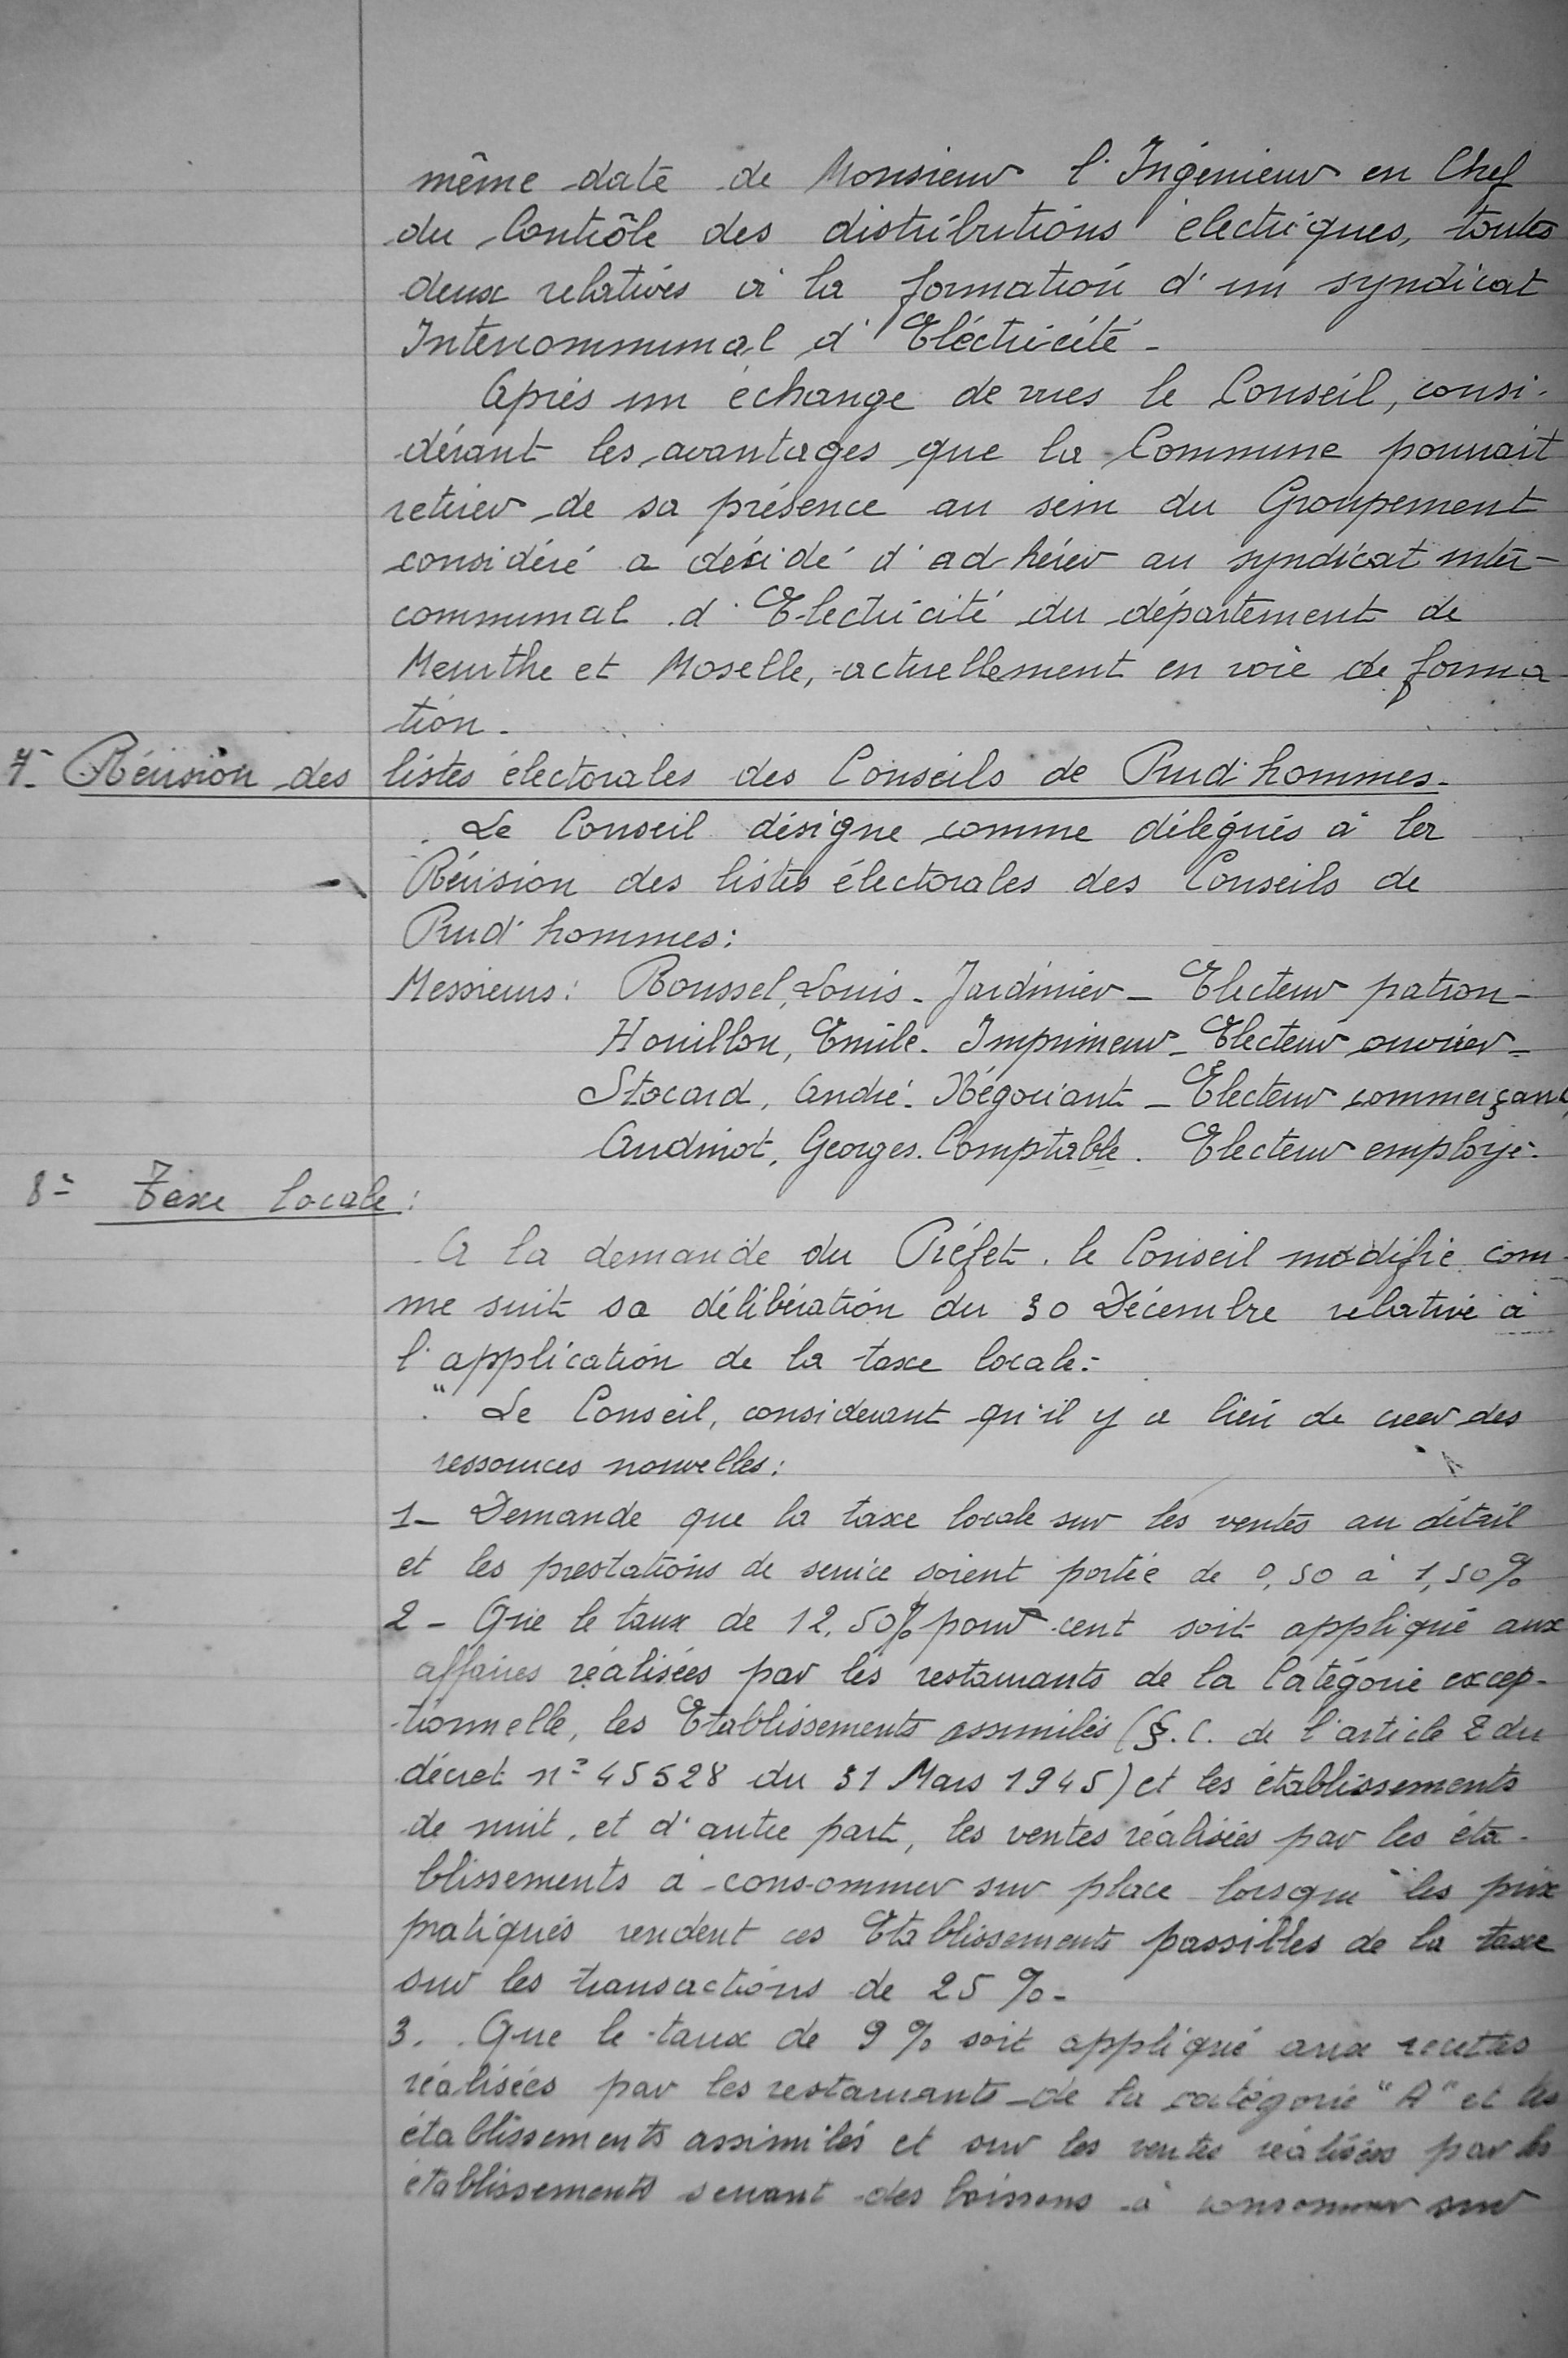 même date de Monsieur l'Ingénieur en Chef
du Contrôle des distributions électriques, toutes
deux relatives à la formation d'un syndicat
Intercommunal d'Eléctricité -
Après un échange de vues le Conseil, consi-
dérant les avantages que la Commune pourrait
retirer de sa présence au sein du Groupement
considéré a décidé d'adhérer au syndicat inter-
communal d'Electricité du département de
Meurthe et Moselle, actuellement en voie de forma-
tion -
7- Révision des listes électorales des Conseils de Prud'hommes -
Le Conseil désigne comme délégués à la
Révision des listes électorales des Conseils de
Prud'hommes :
Messieurs : Roussel, Louis - Jardinier - Electeur patron -
Houillon, Emile - Imprimeur - Electeur ouvrier -
Stocard, André - Négociant - Electeur commerçant
Audinot, Georges. Comptable. Electeur employé -
8- Taxe locale :
A la demande du Préfet. le Conseil modifie com-
me suit sa délibération du 30 Décembre relative à
l'application de la taxe locale :
" Le Conseil, considerant qu'il y a lieu de creer des
ressources nouvelles :
1 - Demande que la taxe locale sur les ventes au détail
et les prestations de service soient portée de 0,50 à 1,50 %
2 - Que le taux de 12,50% pour cent soit appliqué aux
affaires réalisées par les restaurants de la Catégorie excep-
tionnelle, les Etablissements assimilés (§. C. de l'article 2 du
décret n° 45528 du 31 Mars 1945) et les établissements
de nuit, et d'autre part, les ventes réalisées par les éta-
blissements à consommer sur place lorsque les prix
pratiqués rendent ces Etablissements passibles de la taxe
sur les transactions de 25 % -
3. Que le taux de 9 % soit appliqué aux recettes
réalisées par les restaurants de la catégorie "A" et les
établissements assimilés et sur les ventes réalisées par les
établissements servant des boissons à consommer sur